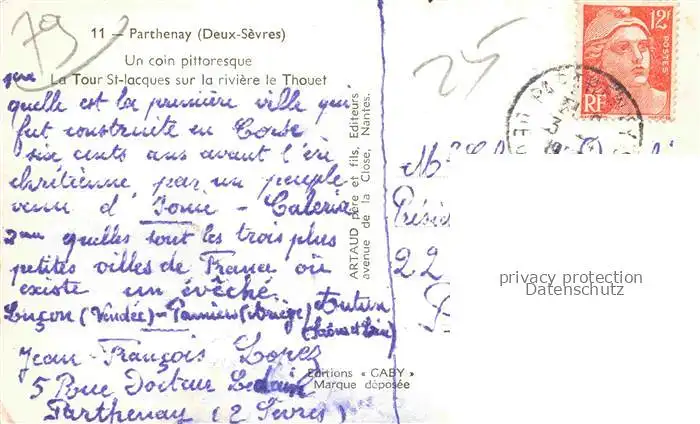 79
11 — Parthenay (Deux-Sèvres)
Un coin pittoresque
La Tour St-Jacques sur la rivière le Thouet
1ère
quelle est la première ville qui
fut construite en Corse
six cents ans avant l'ère
chrétienne par un peuple
venu d'Ionie - Caleria
2ème quelles sont les trois plus
petites villes de France où
existe un évêché.
Luçon (Vendée) - Pamiers (Ariège) Autun
(Saône et Loire)
Jean-François Lopez
5 Rue Docteur Ledain
Parthenay (2 Sèvres)
ARTAUD père et fils, Editeurs
avenue de la Close, Nantes.
Editions « GABY »
Marque déposée
25
12F
POSTES
RF
PARTHENAY
Présid
22
privacy protection
Datenschutz